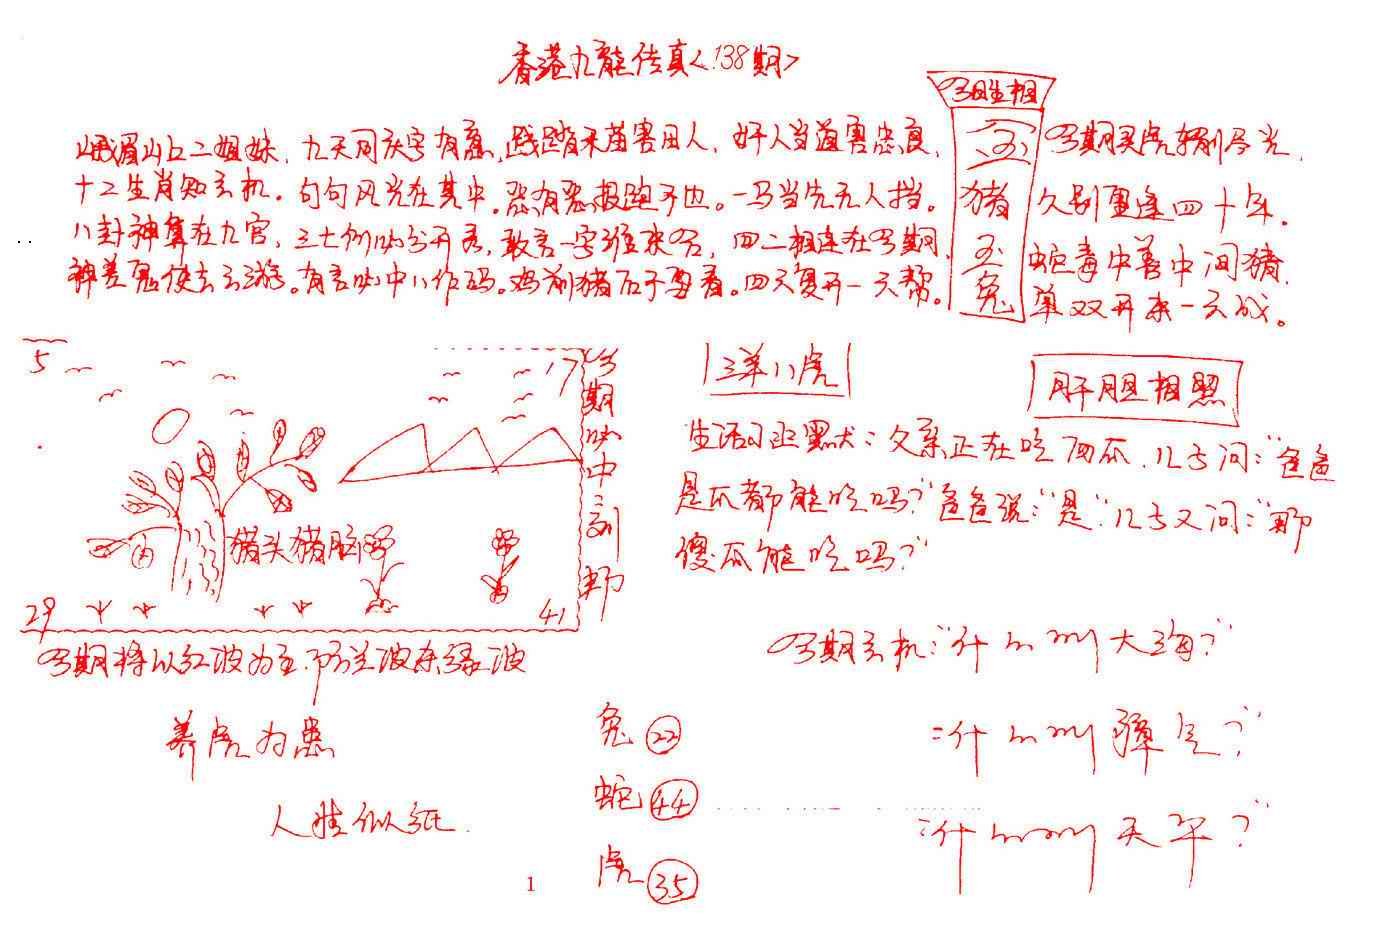 香港九龍传真<138期>
今日生相
峨眉山上二姐妹，九天同庆字有意，践踏禾苗害田人，奸人当道害忠良，
今期灵虎
十二生肖知玄机。句句风光在其中。恶有恶报跑不也。一马当先无人挡。
久别重逢四十年。
八卦神算在九宫，三七例必分开看，敢言一字难来答，四二相连在今期，
蛇毒中善中间猪，
神差鬼使去云游。有言必中八作码。鸡前猪后于要看。四天复开一天帮。
单双开来一天成。
玉
猪
玉
兔
5
17
29
41
猪头猪脑
今期必中
今期将以红波为主，防兰波杀绿波
养虎为患
人生似纸
三羊八虎
肝胆相照
生活习班默犬：父亲正在吃西瓜，儿子问："爸爸
是瓜都能吃吗？"爸爸说："是"儿子又问："那
傻瓜能吃吗？"
今期玄机："什么叫大海？"
"什么叫弹气？"
"什么叫天平？"
兔 22
蛇 44
虎 35
1